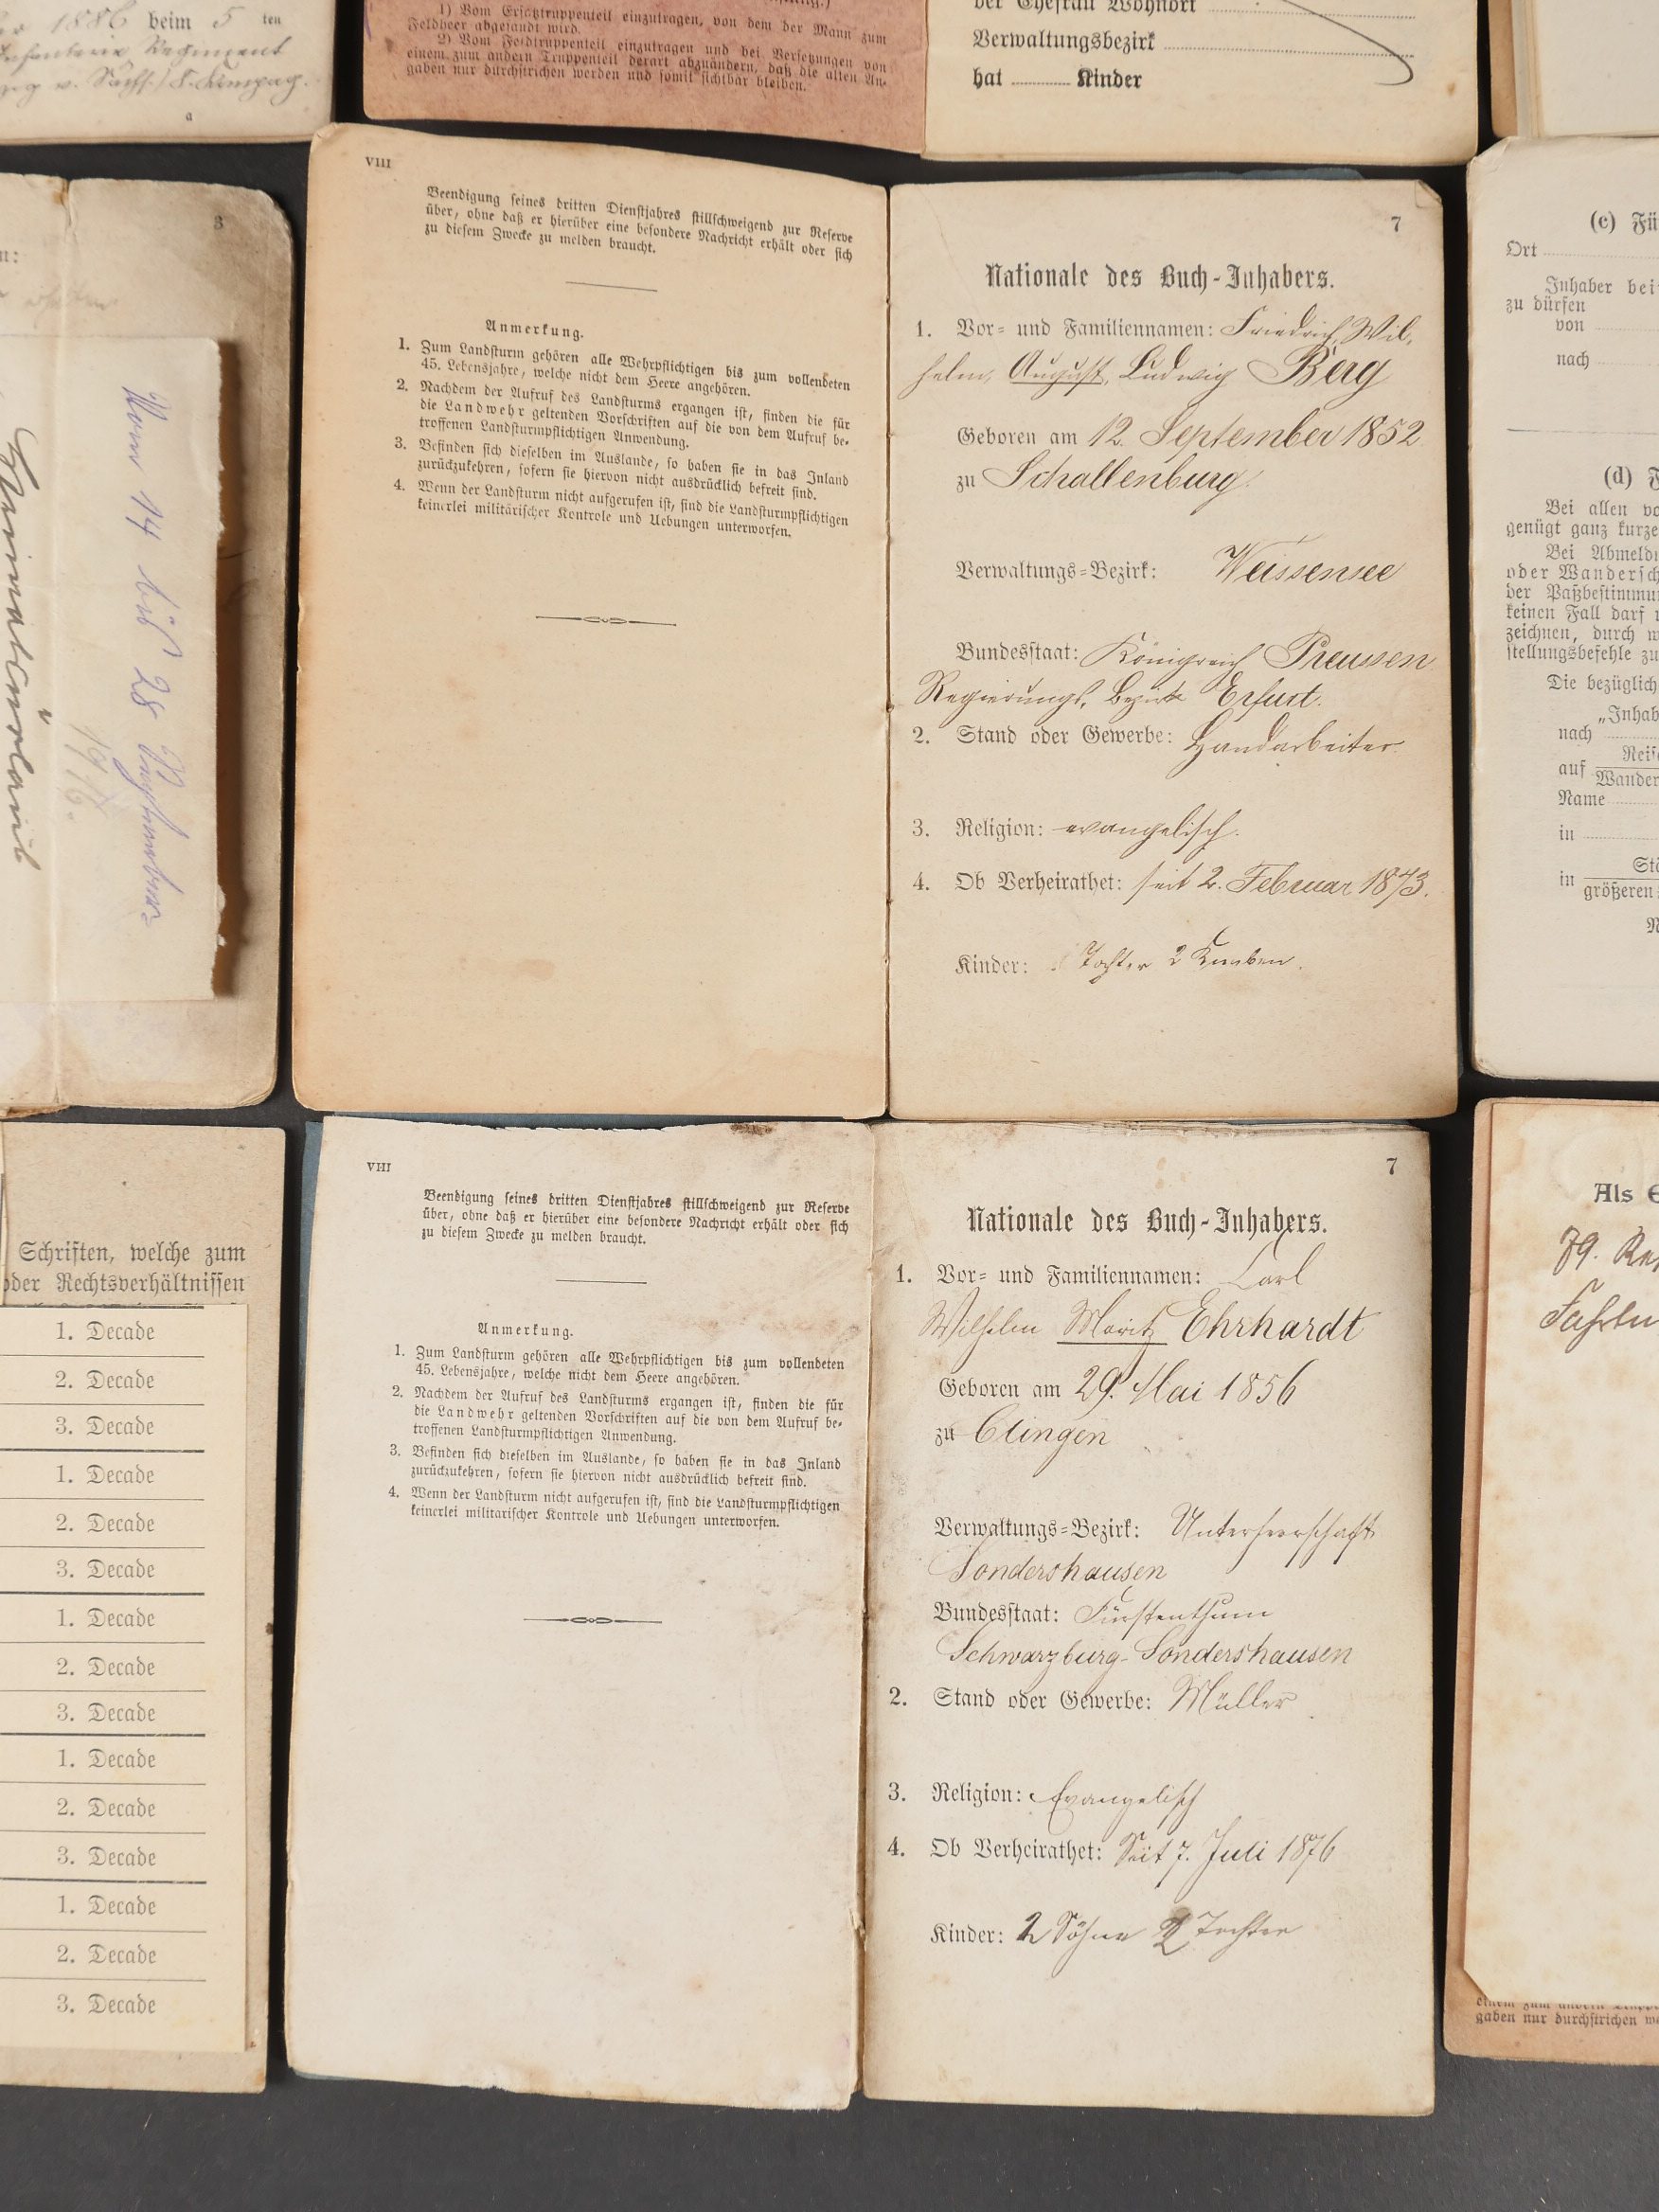 1886 beim 5 ten
Infanterie Regiment
a
1) Vom Ersatztruppenteil einzutragen, von dem der Mann zum
Feldheer abgesandt wird.
2) Vom Feldtruppenteil einzutragen und bei Versetzungen von
einem zum andern Truppenteil derart abzuändern, daß die alten An-
gaben nur durchstrichen werden und somit sichtbar bleiben.
der Ehefrau Wohnort
Verwaltungsbezirk
hat Kinder
3
Vom 14 bis 28
VIII
Beendigung seines dritten Dienstjahres stillschweigend zur Reserve
über, ohne daß er hierüber eine besondere Nachricht erhält oder sich
zu diesem Zwecke zu melden braucht.
Anmerkung.
1. Zum Landsturm gehören alle Wehrpflichtigen bis zum vollendeten
45. Lebensjahre, welche nicht dem Heere angehören.
2. Nachdem der Aufruf des Landsturms ergangen ist, finden die für
die Landwehr geltenden Vorschriften auf die von dem Aufruf be-
troffenen Landsturmpflichtigen Anwendung.
3. Befinden sich dieselben im Auslande, so haben sie in das Inland
zurückzukehren, sofern sie hiervon nicht ausdrücklich befreit sind.
4. Wenn der Landsturm nicht aufgerufen ist, sind die Landsturmpflichtigen
keinerlei militärischer Kontrole und Uebungen unterworfen.
7
Nationale des Buch-Inhabers.
1. Vor- und Familiennamen: Friedrich, Wil-
helm, August, Ludwig Berg
Geboren am 12. September 1852
zu Schallenburg.
Verwaltungs-Bezirk: Weissensee
Bundesstaat: Königreich Preussen
Regierungs-Bezirk Erfurt.
2. Stand oder Gewerbe: Handarbeiter.
3. Religion: evangelisch.
4. Ob Verheirathet: seit 2. Februar 1873.
Kinder: Tochter 2 Knaben.
(c) Fü
Ort
Inhaber bei
zu dürfen
von
nach
(d) F
Bei allen vo
genügt ganz kurze
Bei Abmeld
oder Wandersch
der Paßbestimmu
keinen Fall darf
zeichnen, durch
stellungsbefehle zu
Die bezüglich
„Inhab
nach
auf Reis
Wander
Name
in
in Stä
größeren
Schriften, welche zum
oder Rechtsverhältnissen
1. Decade
2. Decade
3. Decade
1. Decade
2. Decade
3. Decade
1. Decade
2. Decade
3. Decade
1. Decade
2. Decade
3. Decade
1. Decade
2. Decade
3. Decade
VIII
Beendigung seines dritten Dienstjahres stillschweigend zur Reserve
über, ohne daß er hierüber eine besondere Nachricht erhält oder sich
zu diesem Zwecke zu melden braucht.
Anmerkung.
1. Zum Landsturm gehören alle Wehrpflichtigen bis zum vollendeten
45. Lebensjahre, welche nicht dem Heere angehören.
2. Nachdem der Aufruf des Landsturms ergangen ist, finden die für
die Landwehr geltenden Vorschriften auf die von dem Aufruf be-
troffenen Landsturmpflichtigen Anwendung.
3. Befinden sich dieselben im Auslande, so haben sie in das Inland
zurückzukehren, sofern sie hiervon nicht ausdrücklich befreit sind.
4. Wenn der Landsturm nicht aufgerufen ist, sind die Landsturmpflichtigen
keinerlei militärischer Kontrole und Uebungen unterworfen.
7
Nationale des Buch-Inhabers.
1. Vor- und Familiennamen: Carl
Wilhelm Moritz Ehrhardt
Geboren am 29. Mai 1856
zu Clingen
Verwaltungs-Bezirk: Unterherrschaft
Sondershausen
Bundesstaat: Fürstenthum
Schwarzburg-Sondershausen
2. Stand oder Gewerbe: Müller
3. Religion: Evangelisch
4. Ob Verheirathet: Seit 7. Juli 1876
Kinder: 2 Söhne 2 Tochter
Als E
79. Re
gaben nur durchstrichen